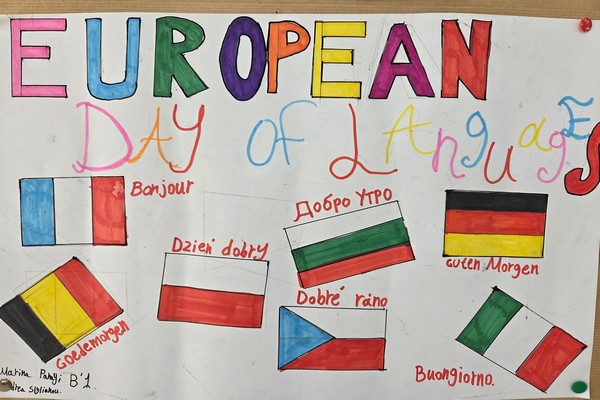 EUROPEAN
DAY OF LANguagES
Bonjour
Добро Утро
Dzień dobry
Guten Morgen
Dobré ráno
Goedemorgen
Buongiorno.
Marina B'1.